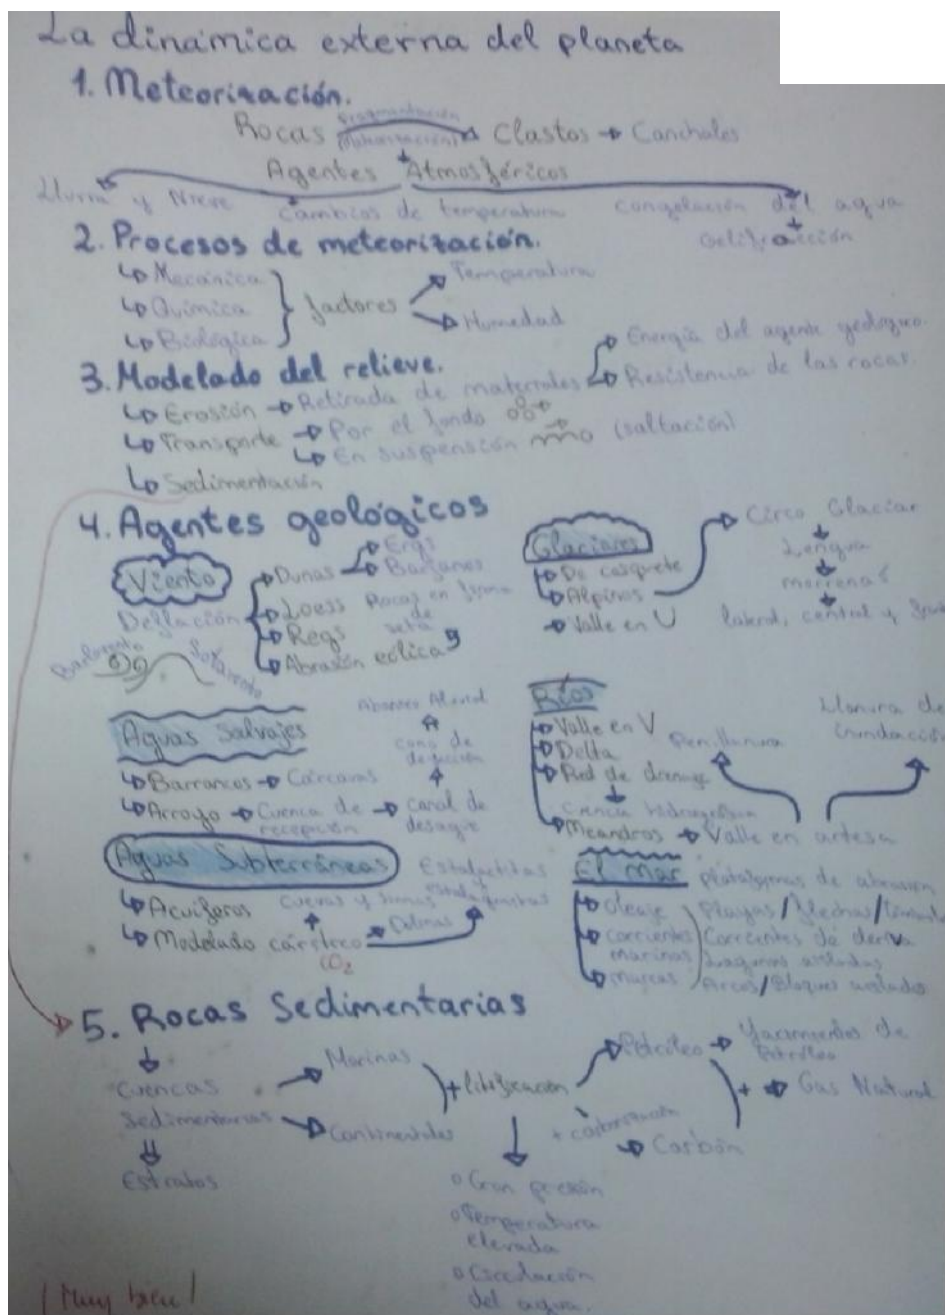 La dinámica externa del planeta
1. Meteorización.
Fragmentación
Rocas → Clastos → Canchales
Agentes Atmosféricos
Lluvia y Nieve Cambios de temperatura Congelación del agua
Gelifracción
2. Procesos de meteorización.
↳ Mecánica
↳ Química
↳ Biológica
factores
Temperatura
Humedad
3. Modelado del relieve.
↳ Erosión → Retirada de materiales
Energía del agente geológico.
Resistencia de las rocas.
↳ Transporte → Por el fondo
↳ En suspensión (saltación)
↳ Sedimentación
4. Agentes geológicos
Viento
Deflación
Dunas
Ergs
Barjanes
Loess
Regs
Abrasión eólica
Rocas en forma
de
seta
Barlovento
Sotavento
Glaciares
De casquete
Alpinos
→ Valle en U
Circo Glaciar
Lengua
morrenas
lateral, central y
Aguas Salvajes
↳ Barrancos → Cárcavas
↳ Arroyo → Cuenca de recepción → Canal de desagüe
cono de deyección
Abanico Aluvial
Ríos
Valle en V
Delta
Red de drenaje
Cuenca hidrográfica
Meandros → Valle en artesa
Penillanura
Llanura de inundación
Aguas Subterráneas
↳ Acuíferos
↳ Modelado cárstico
CO₂
Cuevas y simas
Dolinas
Estalactitas
y
estalagmitas
El Mar
plataformas de abrasión
Oleaje
Corrientes marinas
mareas
Playas/Flechas/
Corrientes de deriva
Lagunas aisladas
Arcos/Bloques aislados
5. Rocas Sedimentarias
Cuencas
Sedimentarias
Estratos
Marinas
Continentales
+ litificación
Petróleo → Yacimientos de Petróleo
+ → Gas Natural
→ Carbón
o Gran presión
o Temperatura
elevada
o Circulación
del agua.
¡Muy bien!